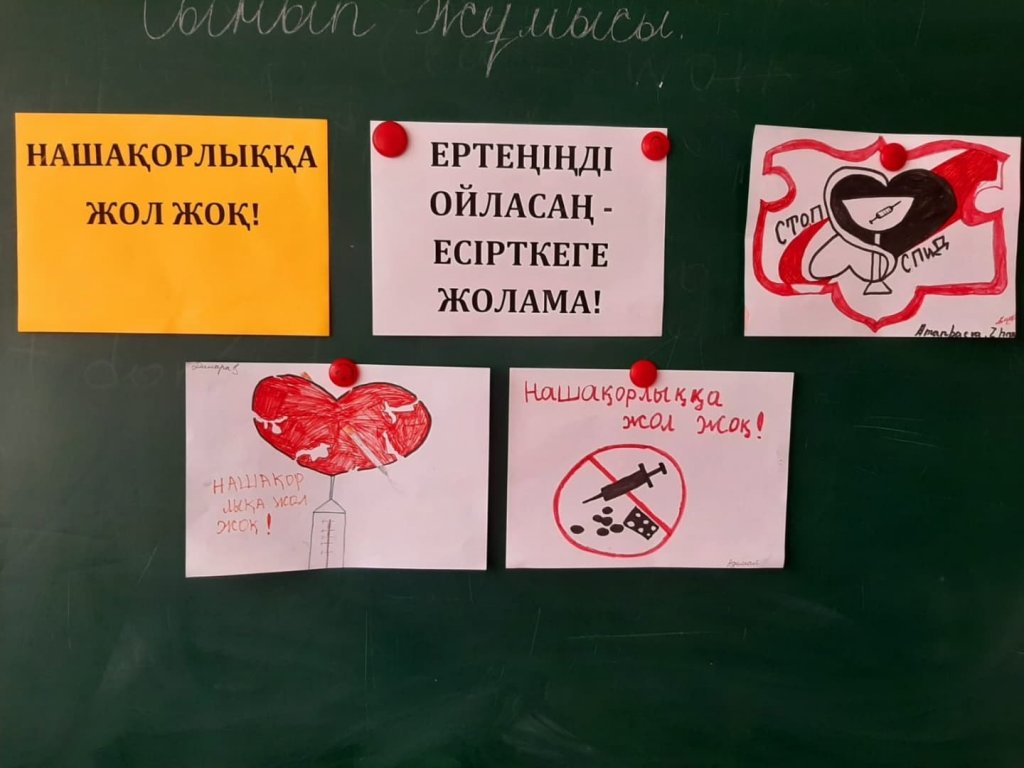 Сынып жұмысы.
НАШАҚОРЛЫҚҚА
ЖОЛ ЖОҚ!
ЕРТЕҢІҢДІ
ОЙЛАСАҢ -
ЕСІРТКЕГЕ
ЖОЛАМА!
СТОП
СПИД
НАШАҚОР
ЛЫҚА ЖОЛ
ЖОҚ!
Нашақорлыққа
жол жоқ!